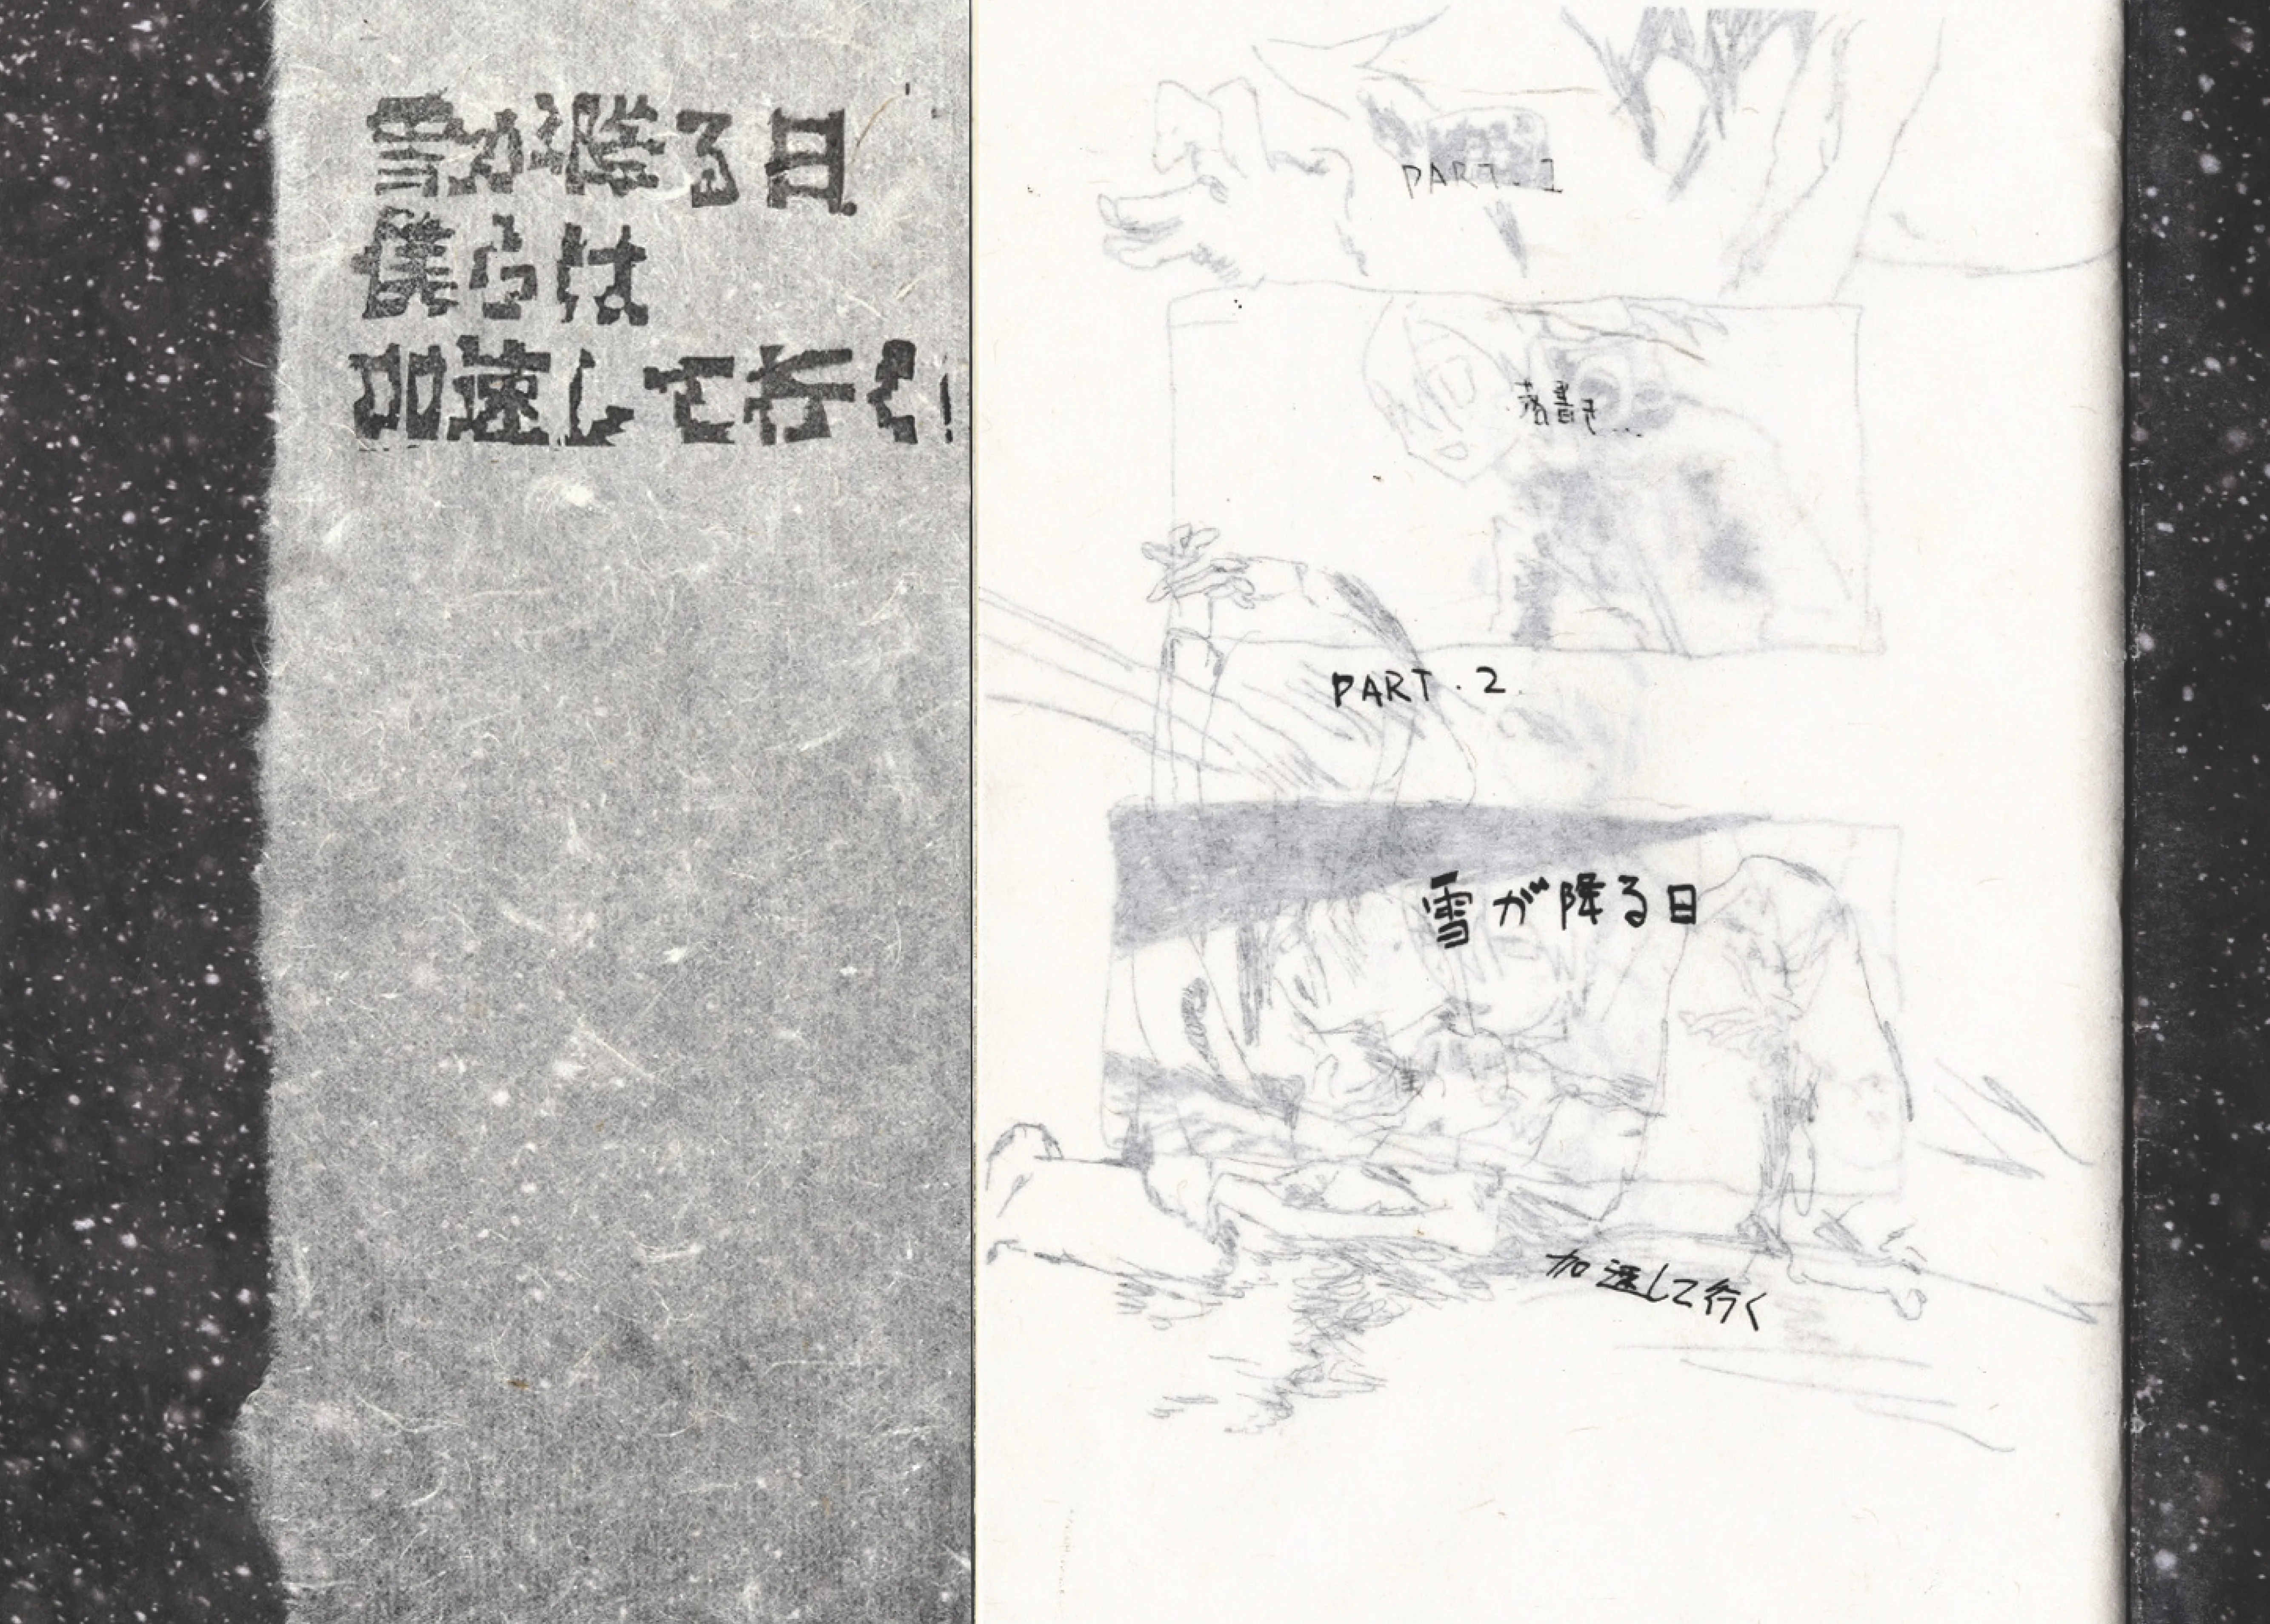 雪が降る日
僕らは
加速して行く!
PART.1
落書き...
PART.2
雪が降る日
加速して行く